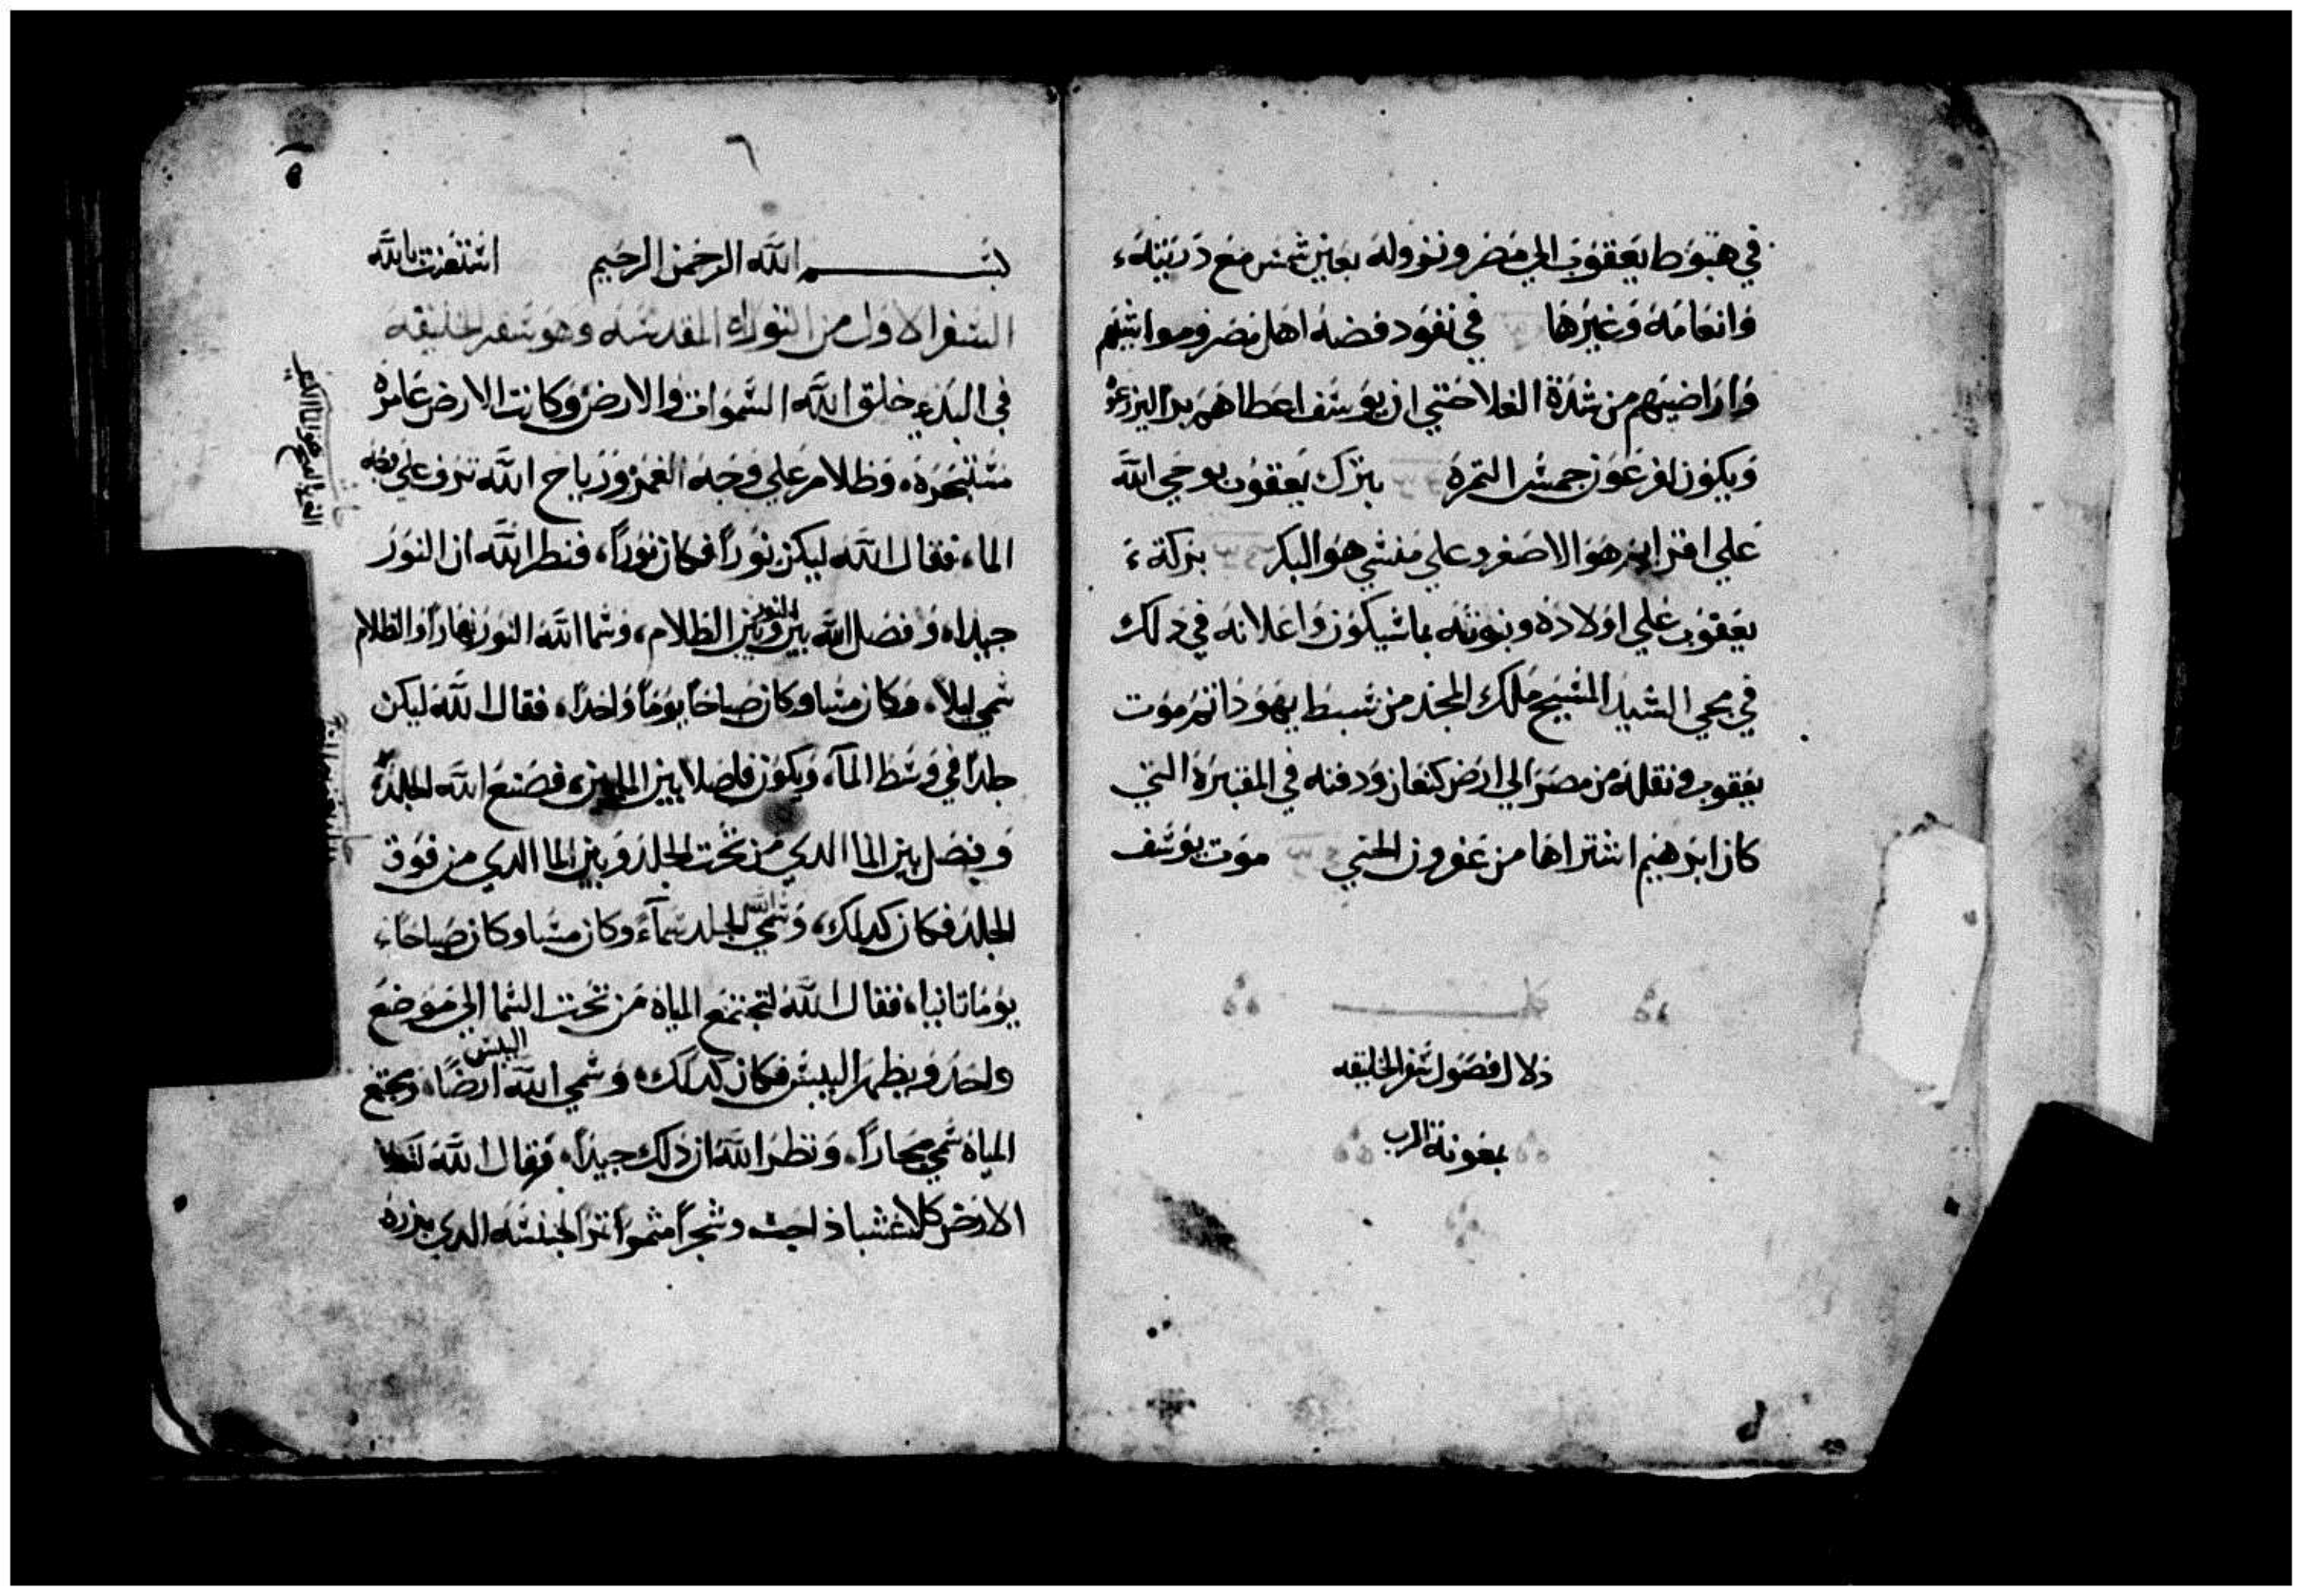 في هبوط يعقوب الي مصر ونزوله بعين شمس مع دريته
وانعامه وغيرها في نفود فضه اهل مصر ومواشيهم
واراضيهم من شدة الغلا حتي ان يوسف اعطاهم بدا ليزرعوه
ويكون لفرعون خمس التمره بترك يعقوب بوحي الله
علي افرايم هو الاصغر وعلي منشي هو البكر بركة
يعقوب علي اولاده ونبوته بما سيكون واعلانه في دلك
في مجي السيد المسيح ملك المجد من سبط يهودا تم موت
يعقوب ونقله من مصر الي ارض كنعان ودفنه في المقبره التي
كان ابرهيم اشتراها من عفرون الحتي موت يوسف
كمل
دلال فصول سفر الخليقه
بمعونة الرب
٦
بسم الله الرحمن الرحيم استعنت بالله
السفر الاول من التوراه المقدسه وهو سفر الخليقه
في البدء خلق الله السموات والارض وكانت الارض غامره
مستبحره، وظلام علي وجه الغمر ورياح الله ترف علي وجه
الما، فقال الله ليكن نوراً فكان نوراً، فنظر الله ان النور
جيدا، وفصل الله بين النور وبين الظلام، وسما الله النور نهاراً والظلام
سمي ليلاً، وكان مسا وكان صباحا يوماً واحداً، فقال الله ليكن
جلداً في وسط المآ، ويكون فاصلا بين المايين، فصنع الله الجلد
وفصل بين الما الدي من تحت الجلد وبين الما الدي من فوق
الجلد فكان كدلك، وسمي الله الجلد سمآء وكان مسا وكان صباحاً
يوما تانيا، فقال الله لتجتمع المياه من تحت السما الي موضع
واحد ويظهر اليبس فكان كدلك، وسمي الله اليبس ارضاً، ومجتمع
المياه سمي بحاراً، ونظر الله ان دلك جيداً، فقال الله
الارض كلا عشبا دا حب وشجراً مثمراً تمراً لجنسه الدي بزره